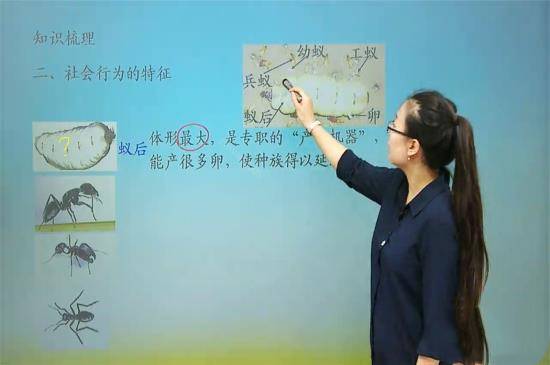 知识梳理
二、社会行为的特征
幼蚁 工蚁
兵蚁
蚁后 卵
?
蚁后
体形最大，是专职的“产 机器”，
能产很多卵，使种族得以延